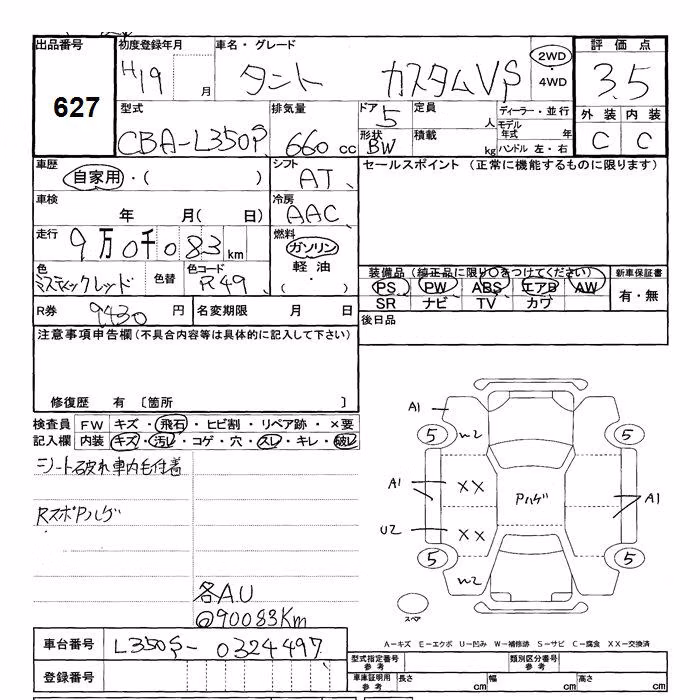 出品番号
627
初度登録年月 H19 月
車名・グレード タント カスタムVS
2WD
・
4WD
評価点
3.5
外装 内装
C C
型式 CBA-L350S
排気量 660 cc
ドア 5
形状 BW
定員 人
積載 kg
ディーラー・並行
モデル年式 年
ハンドル 左・右
車歴 自家用・( )
シフト AT
セールスポイント (正常に機能するものに限ります)
車検 年 月( 日)
冷房 AAC
走行 9万0千083km
燃料 ガソリン
軽油
( ・ )
色 ミスティックレッド
色替
色コード R49
装備品 (純正品に限り○をつけてください)
PS PW ABS エアB AW
SR ナビ TV カワ
新車保証書
有・無
R券 9430 円
名変期限 月 日
後日品
注意事項申告欄 (不具合内容等は具体的に記入して下さい)
修復歴 有 〔箇所 〕
検査員記入欄
FW キズ・飛石・ヒビ割・リペア跡・×要
内装 キズ・汚レ・コゲ・穴・スレ・キレ・破レ
シート破れ 車内毛付着
RスポPハゲ
各A.U
@90083Km
A1
5 W2 5
A1 XX Pハゲ A1
U2 XX
5 W2 5
スペア
A-キズ E-エクボ U-凹み W-補修跡 S-サビ C-腐食 XX-交換済
車台番号 L350S-0324497
登録番号
型式指定番号 参考
類別区分番号 参考
車庫証明用 参考 長さ cm 幅 cm 高さ cm